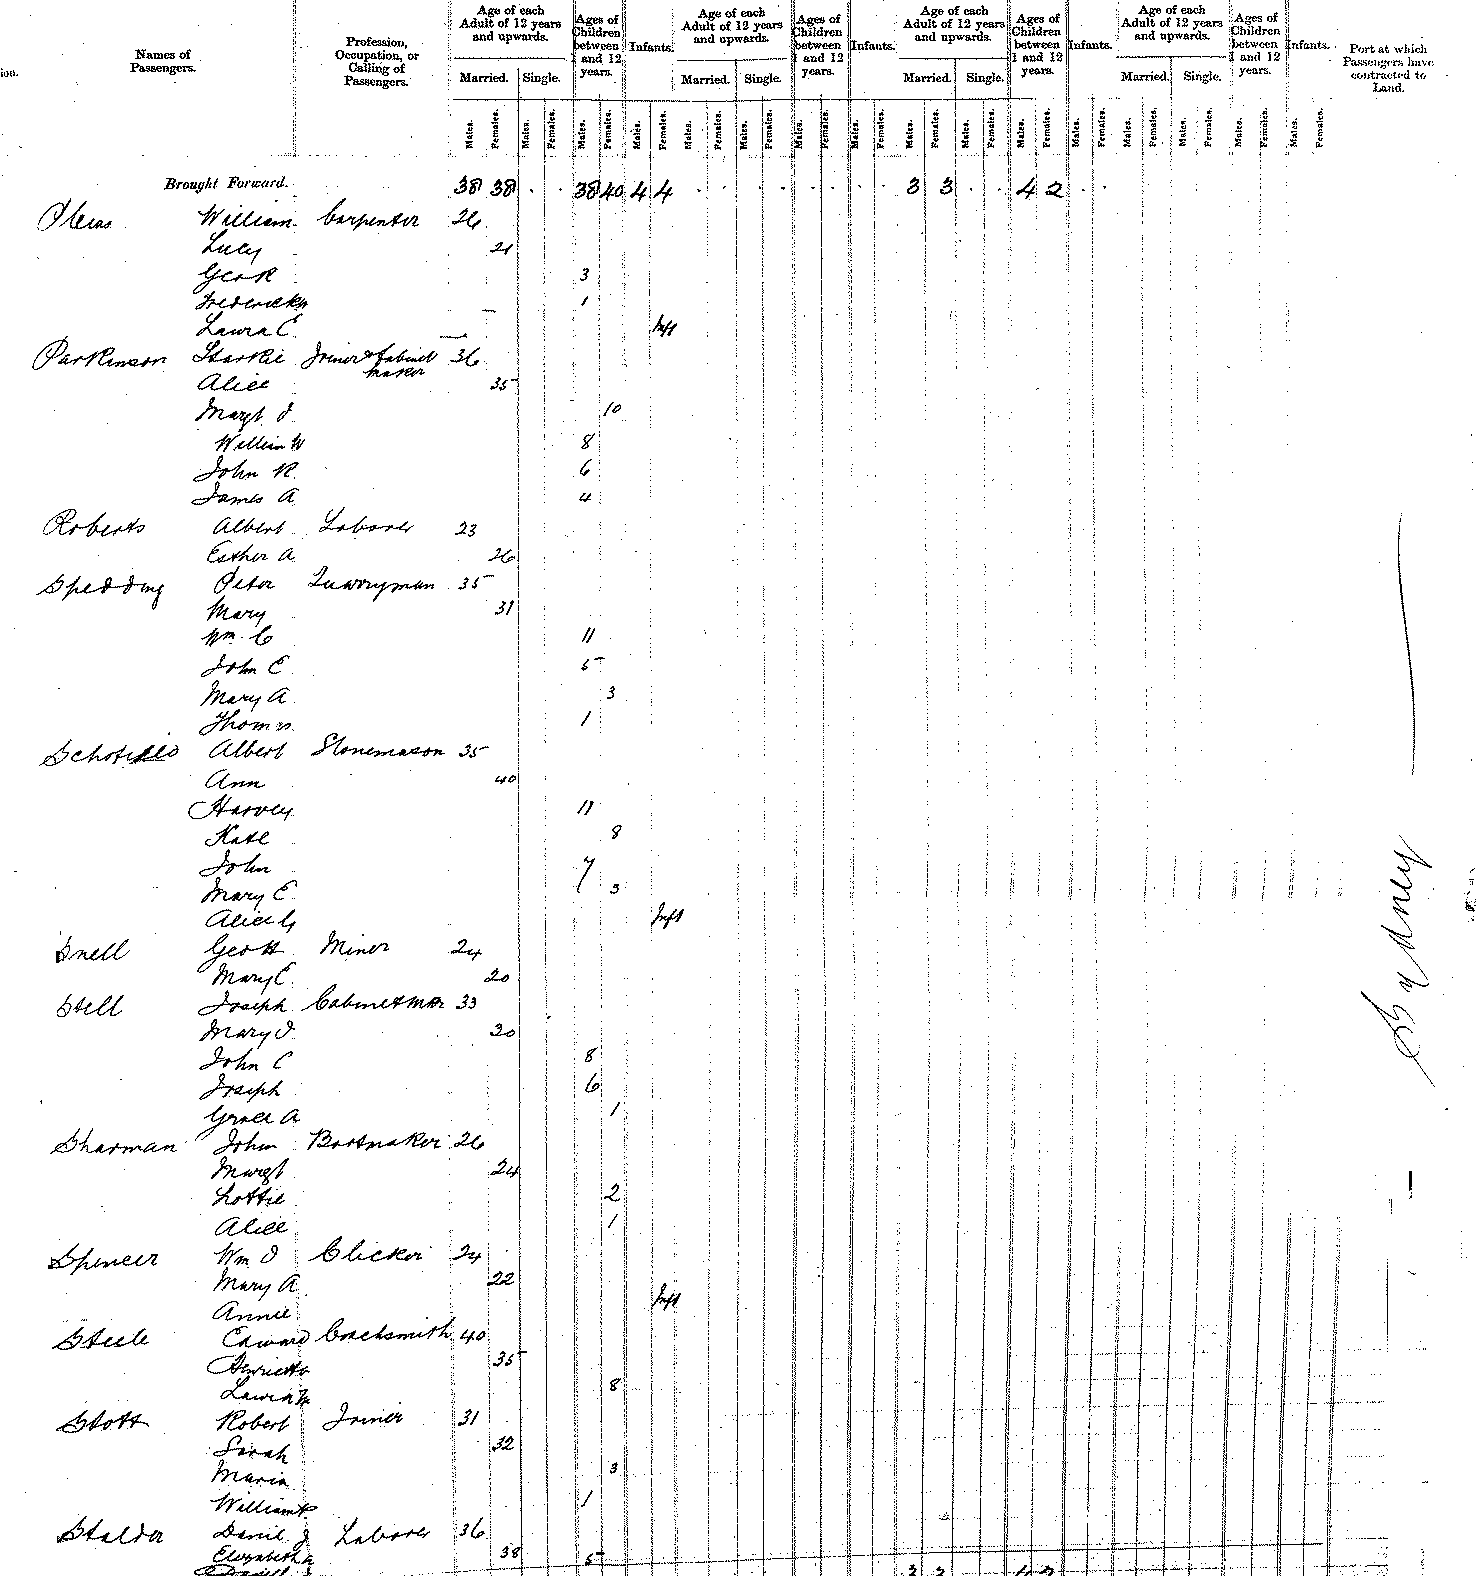 ion.
Names of Passengers.
Profession, Occupation, or Calling of Passengers.
Age of each Adult of 12 years and upwards.
Ages of Children between 1 and 12 years.
Infants.
Age of each Adult of 12 years and upwards.
Ages of Children between 1 and 12 years.
Infants.
Age of each Adult of 12 years and upwards.
Ages of Children between 1 and 12 years.
Infants.
Age of each Adult of 12 years and upwards.
Ages of Children between 1 and 12 years.
Infants.
Port at which Passengers have contracted to Land.
Married. Single. Married. Single. Married. Single. Married. Single.
Males. Females. Males. Females. Males. Females. Males. Females. Males. Females. Males. Females. Males. Females. Males. Females. Males. Females. Males. Females. Males. Females. Males. Females. Males. Females. Males. Females. Males. Females. Males. Females.
Brought Forward. 38 38 . . 38 40 4 4 3 3 . . 4 2 . .
William Carpenter 26
Lucy 21
Geo R 3
Frederick 1
Laura E Inft
Parkinson Starkie Joiner & Cabinet maker 36
Alice 35
Margt J 10
William W 8
John R 6
James A 4
Roberts Albert Laborer 23
Esther A 26
Spedding Peter Quarryman 35
Mary 31
Wm C 11
John E 5
Mary A 3
Thomas 1
Schofield Albert Stonemason 35
Ann 40
Harvey 11
Kate 8
John 7
Mary E 3
Alice G Inft
Snell Geo H Miner 24
Mary E 20
Stell Joseph Cabinetmkr 33
Mary J 30
John C 8
Joseph 6
Grace A 1
Sharman John Bootmaker 26
Margt 24
Lottie 2
Alice 1
Spencer Wm J Clicker 24
Mary A 22
Annie Inft
Steele Edward Coachsmith 40
Henrietta 35
8
Stott Robert Joiner 31
Sarah 32
Maria 3
William 1
Stalder Daniel J Laborer 36
Elizabeth 38
5
Sydney